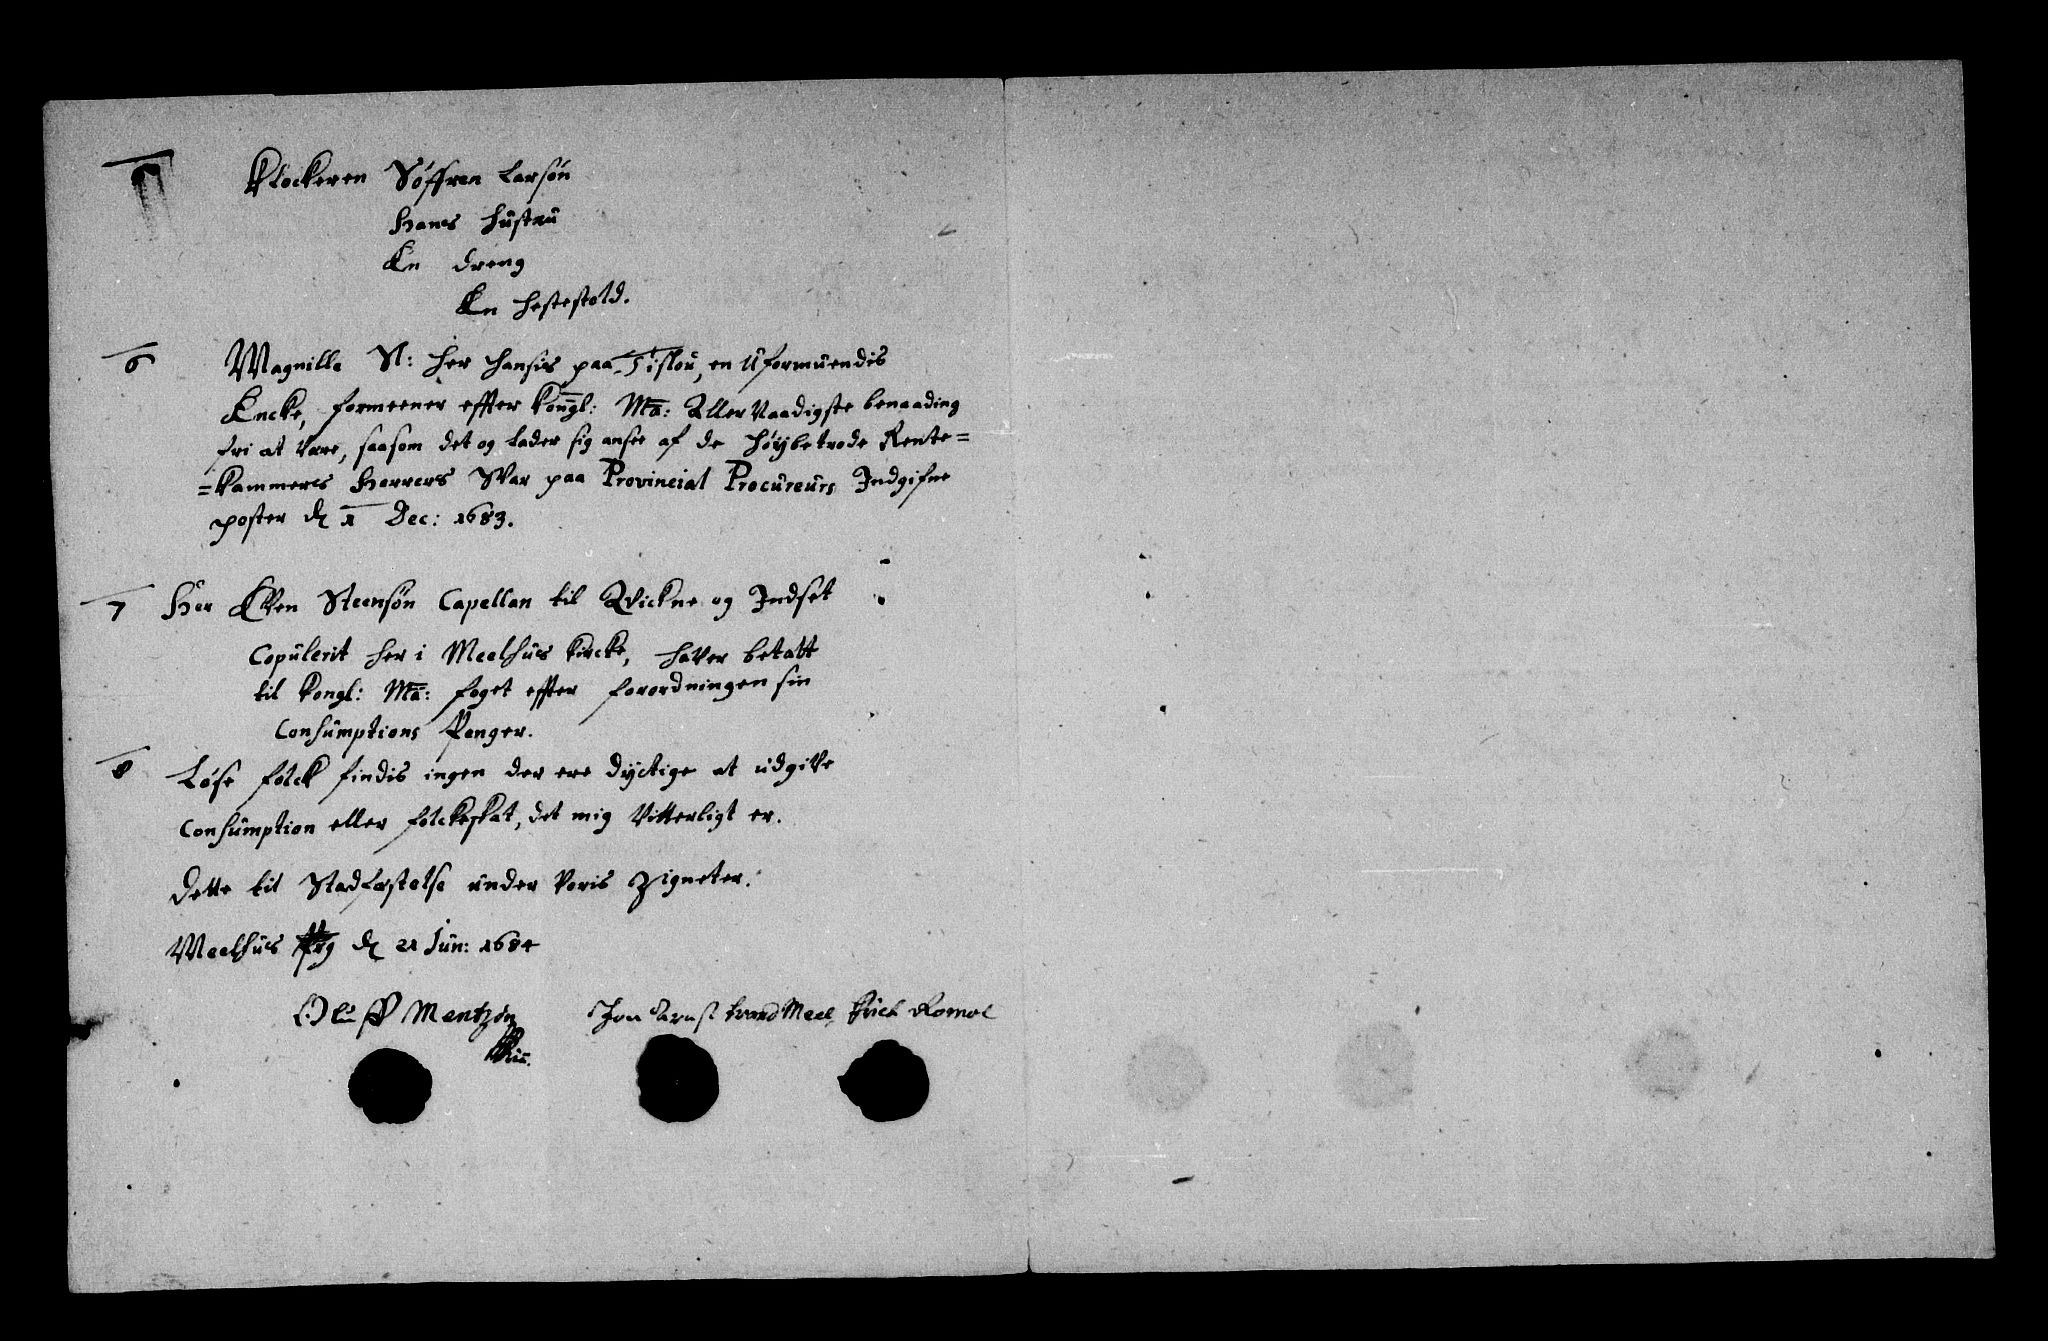 Klockeren Søffren Larsøn
Hans Hustru
En dreng
En Hestestald.
6 Magnille Sl: Her Hansis paa en Uformuendis
Encke, formeener effter Kongl: Ma: Aller Naadigste benaading
fri at være, saasom det og lader sig ansee af de Høybetrode Rente=
=kammers Herrers Svar paa Provincial Procureurs Indgifne
poster d 1 Dec: 1683.
7 Her Even Steensøn Capellan til Qvickne og Indset
Copulerit her i Meelhus Kircke, haver betalt
til Kongl: Ma: foget effter forordningen sin
Consumptions Penger.
8 Løse folck findis ingen der ere dyctige at udgive
Consumption eller folckeskat, det mig vitterligt er.
Dette til Stadfæstelse under voris Zigneter.
Meelhus d 21 Jun: 1684
Ole Mentzøn Jon Meel Erich Romol